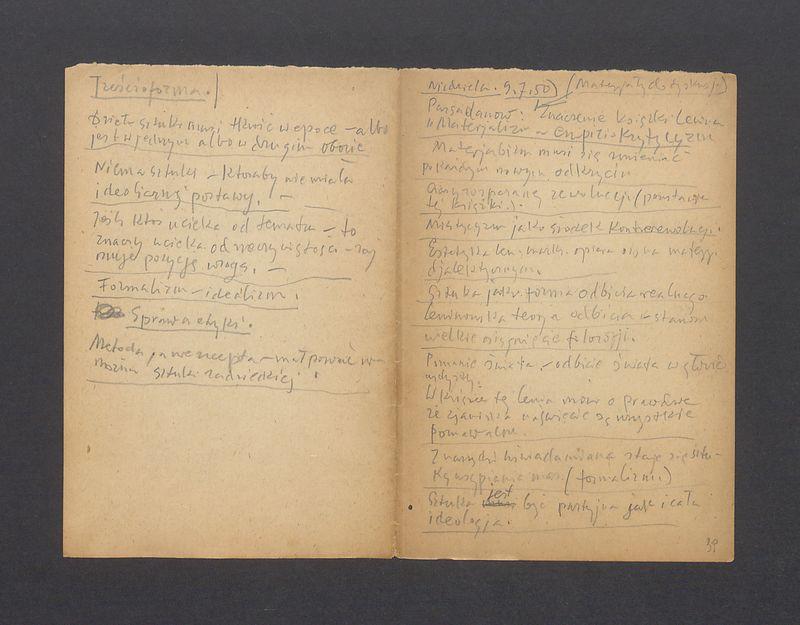 Treść i forma.
Dzieło sztuki musi tkwić w epoce – albo
jest w jednym albo w drugim obozie
Niema sztuki – któraby nie miała
ideolicznej postawy. –
Jeśli ktoś ucieka od tematu – to
znaczy ucieka od rzeczywistości – zaj
muje pozycję wroga. –
Formalizm – idealizm.
Sprawa etyki.
Metoda, a nie recepta – małpować nie
można sztuki radzieckiej.
Niedziela. 9.7.50) (Materjały do dyskusji)
Parsadanow: Znaczenie książki Lenina
"Materjalizm a Empiriokrytycyzm
Materjalizm musi się zmieniać
po każdym nowym odkryciu
rewolucji (powstanie
tej książki).
Mistycyzm jako środek kontrrewolucji.
Estetyka len. marks. opiera się na materj.
djalektycznym.
Sztuka jako forma odbicia realnego
Leninowska teorja odbicia stanowi
wielkie osiągnięcie filozofji.
Poznanie świata – odbicie świata w głowie
W książce tej Lenin mówi o prawdzie
że zjawiska na świecie są wszystkie
poznawalne.
Znarzędzi uświadamiania staje się sztu-
ką usypiania mas. (formalizm)
Sztuka jest być partyjna jak i cała
ideologja.
39